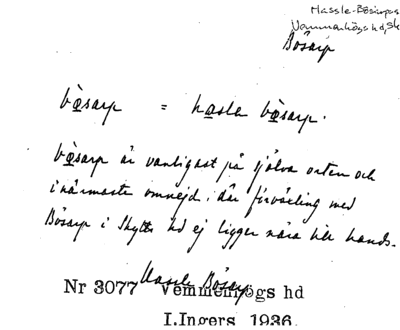 Hassle-Bösarps
Vemmenhögs hd, Sk
Bösarp
bœ̀sarp = hasle bœ̀sarp.
bœ̀sarp är vanligast på själva orten och
i närmaste omnejd, där förväxling med
Bösarp i Skytts hd ej ligger nära till hands.
Hassle Bösarp
Nr 3077 Vemmenhögs hd
I.Ingers 1936.